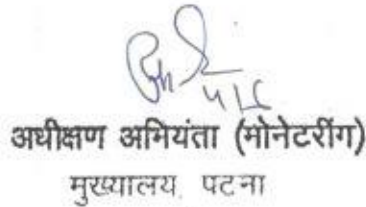 4/6
अधीक्षण अभियंता (मोनेटरींग)
मुख्यालय, पटना